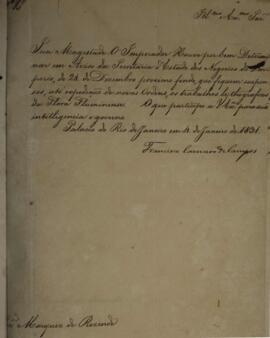 Illmo Exmo Snr
Sua Magestade O Imperador Houve por bem Determi-
nar em Aviso da Secretaria d'Estado dos Negocios do Im-
perio, de 24 de Dezembro proximo findo, que fiquem suspen-
sos, até expedição de novas Ordens, os trabalhos lithograficos
da Flora Fluminense. O que participo a V Exa para sua
intelligencia e governo.
Palacio do Rio de Janeiro em 4 de Janeiro de 1831.
Francisco Carneiro de Campos
Marquez de Rezende